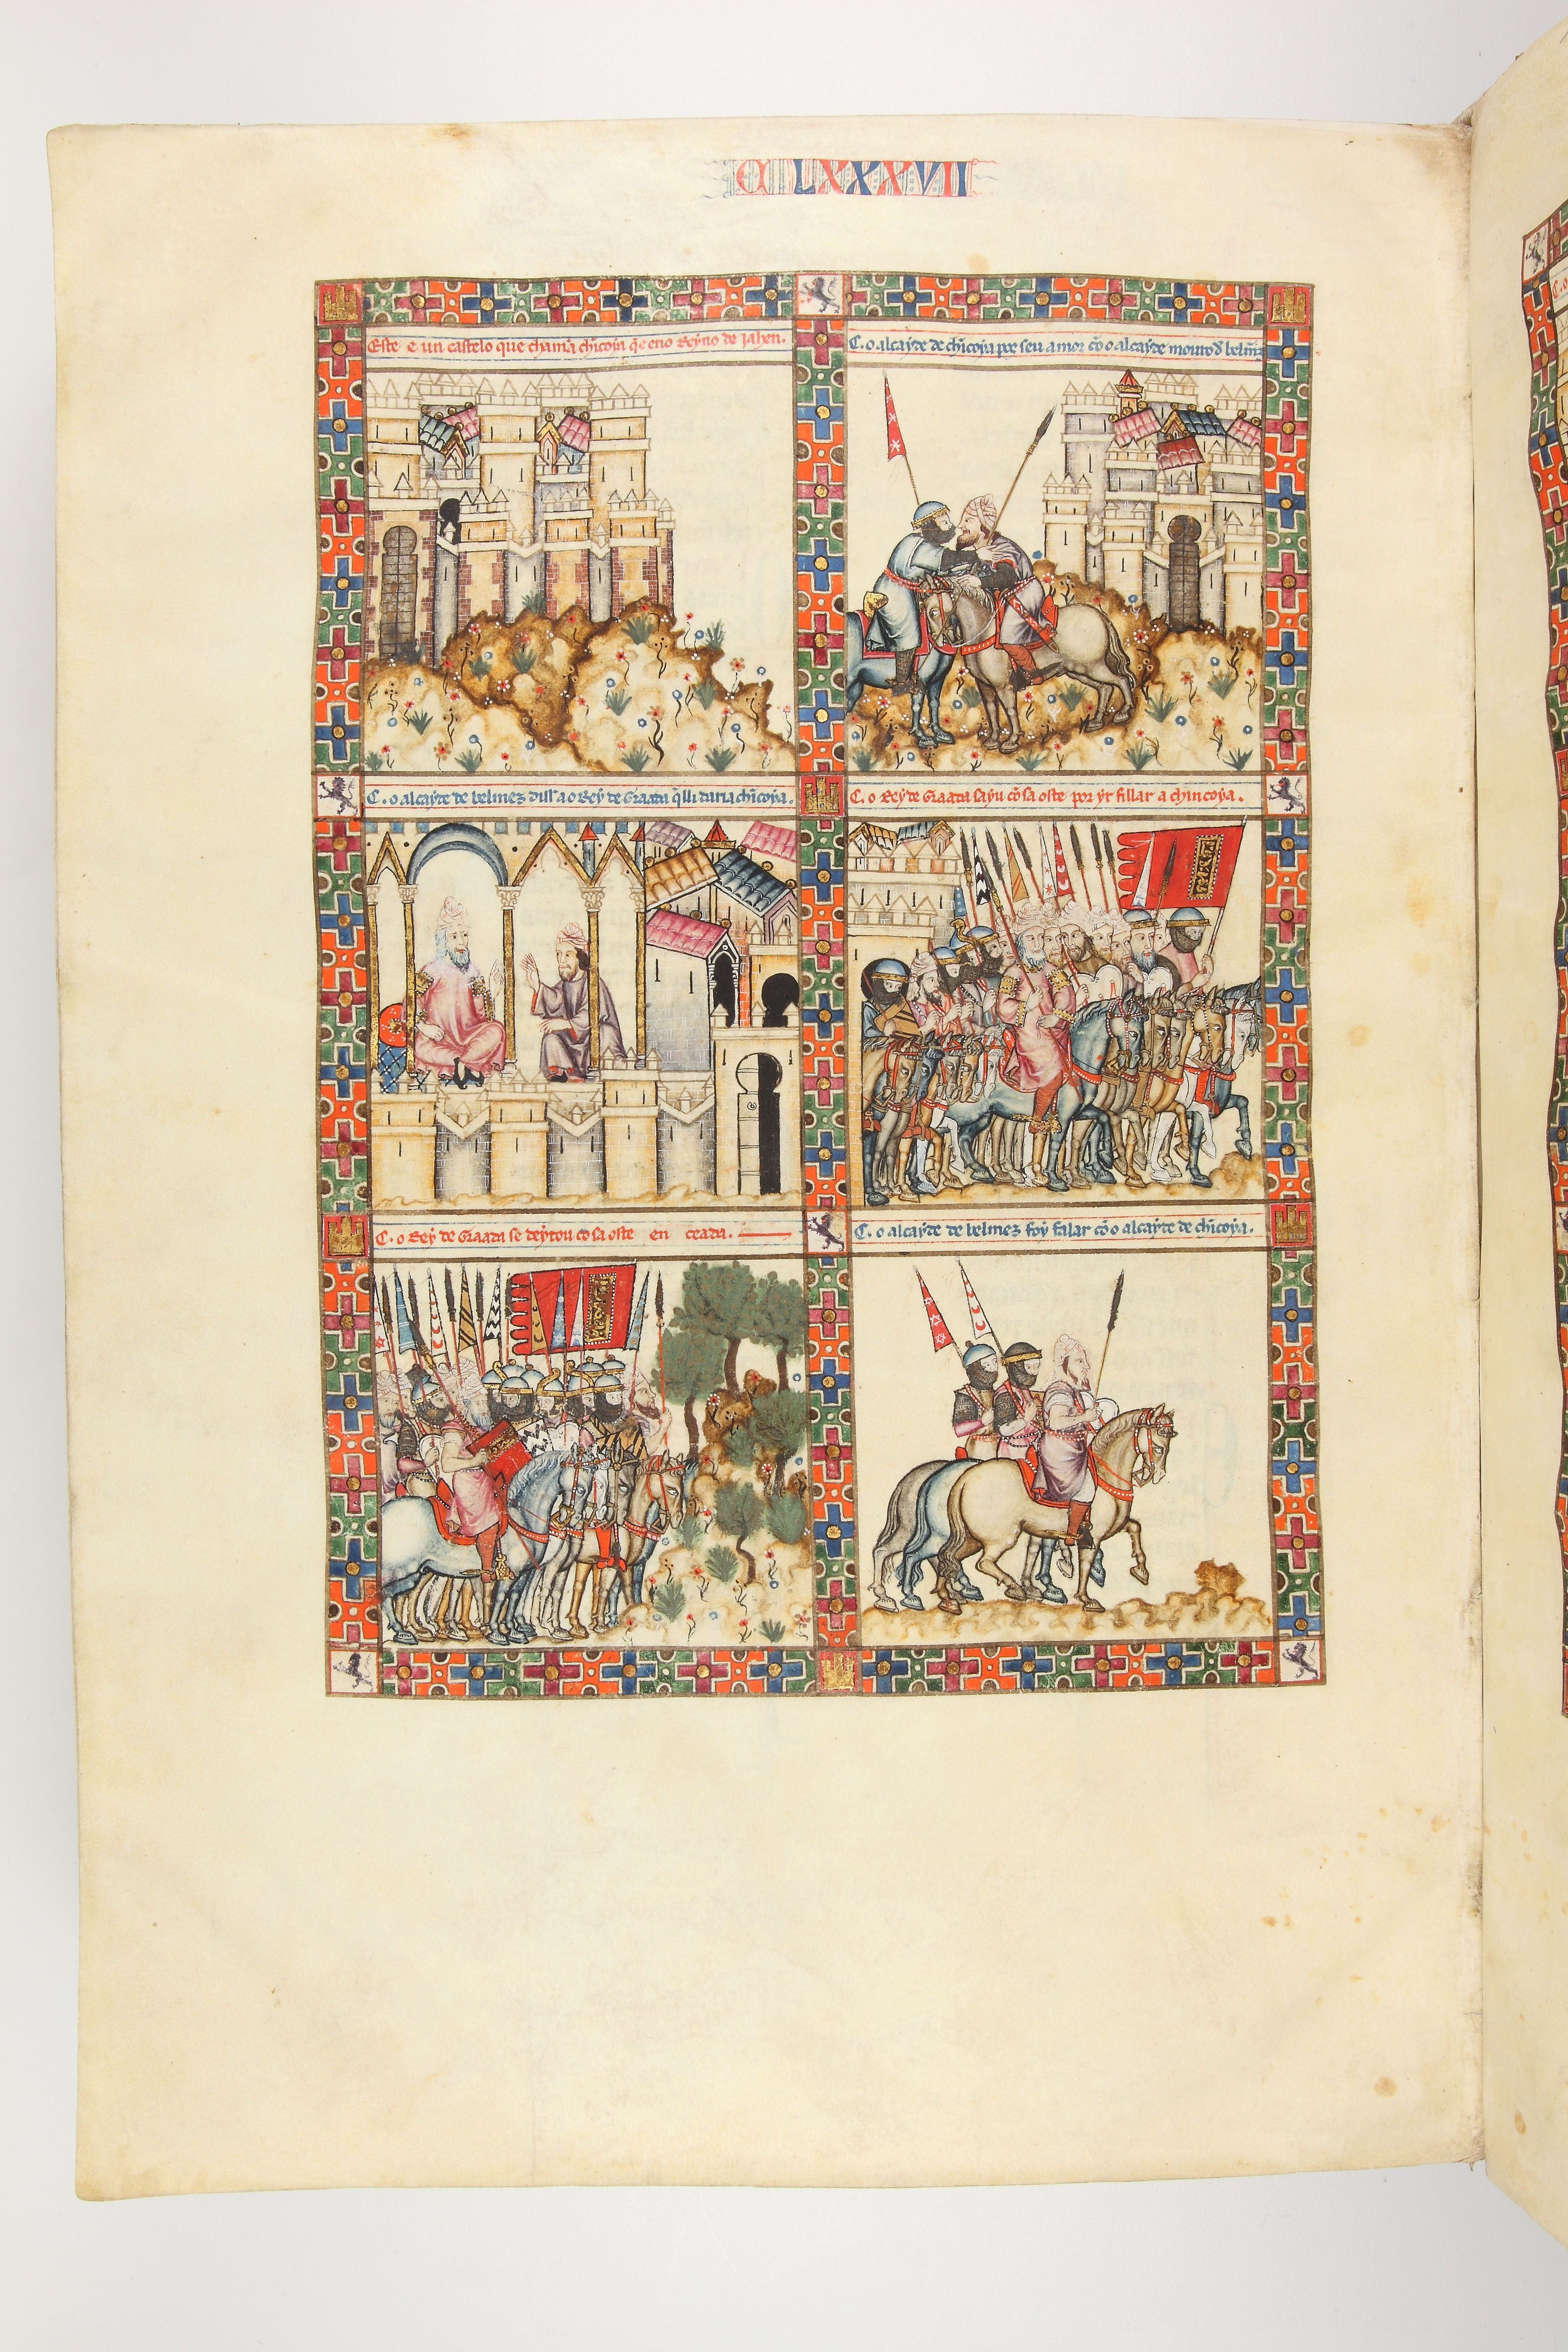 C LXXXVII
Este e un castelo que chamã chĩcoya q̃ e eno Reyno de Jahen.
C. o alcayde de chĩcoya pos seu amor cõ o alcayde mouro d̃ belm̃s
C. o alcayde de belmez diss a o Rey de Graada q̃ lli daria chĩcoya.
C. o Rey de Graada sayu cõ sa oste por yr fillar a chincoya.
C. o Rey de Graada se deytou cõ sa oste en ceada.
C. o alcayde de belmez foy falar cõ o alcayde de chĩcoya.